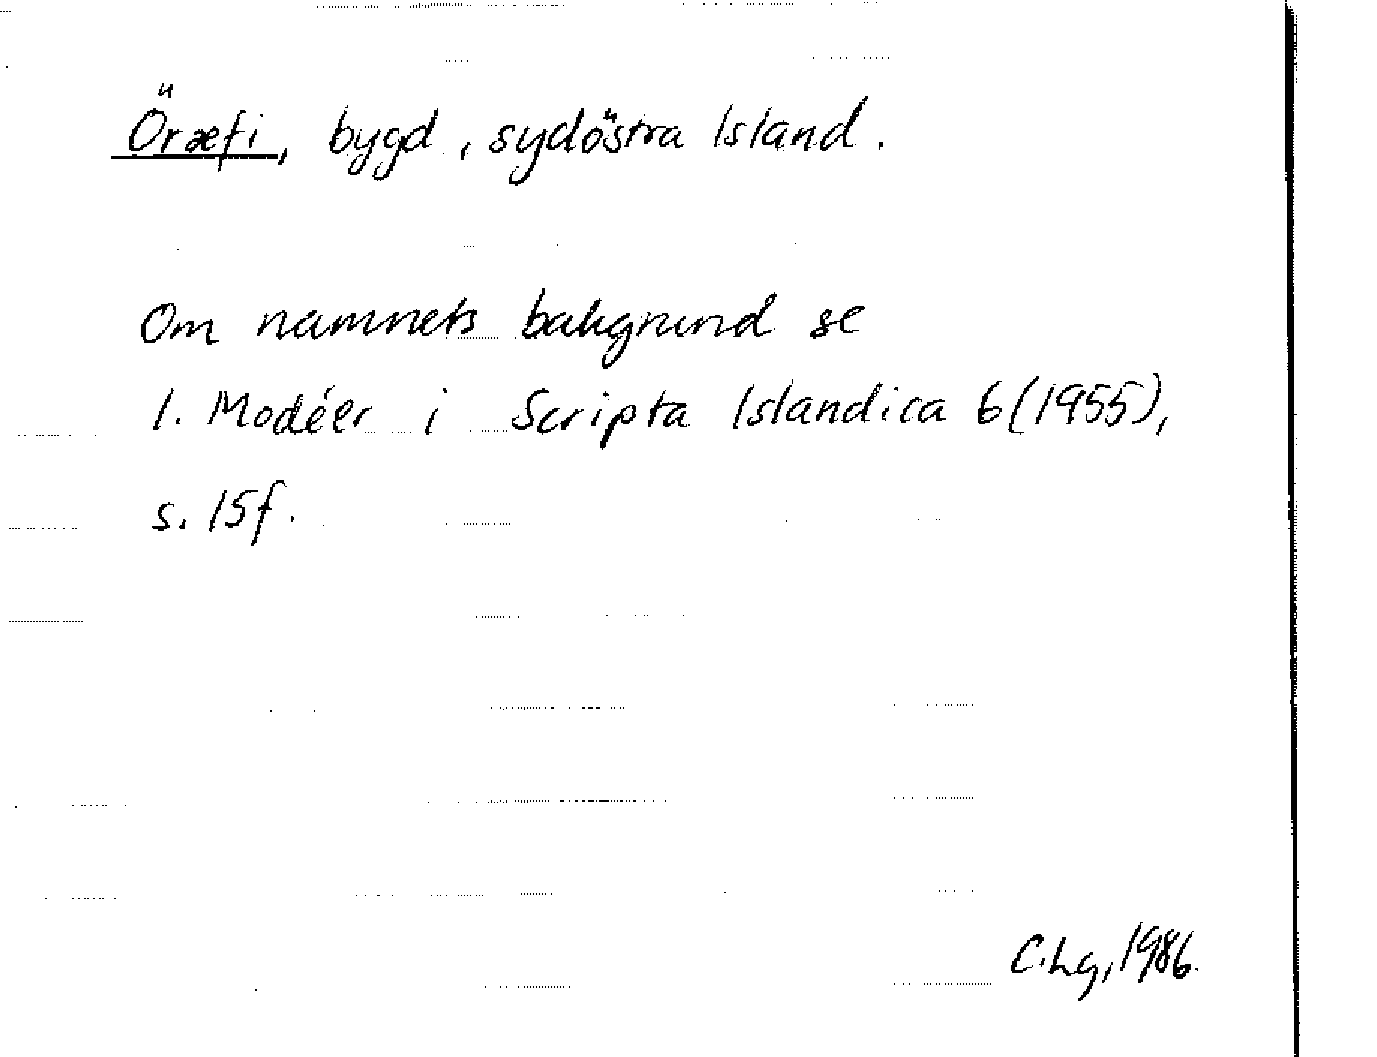 Öræfi, bygd, sydöstra Island.
Om namnets bakgrund se
I. Modéer i Scripta Islandica 6 (1955),
s. 15f.
C.Lg, 1986.